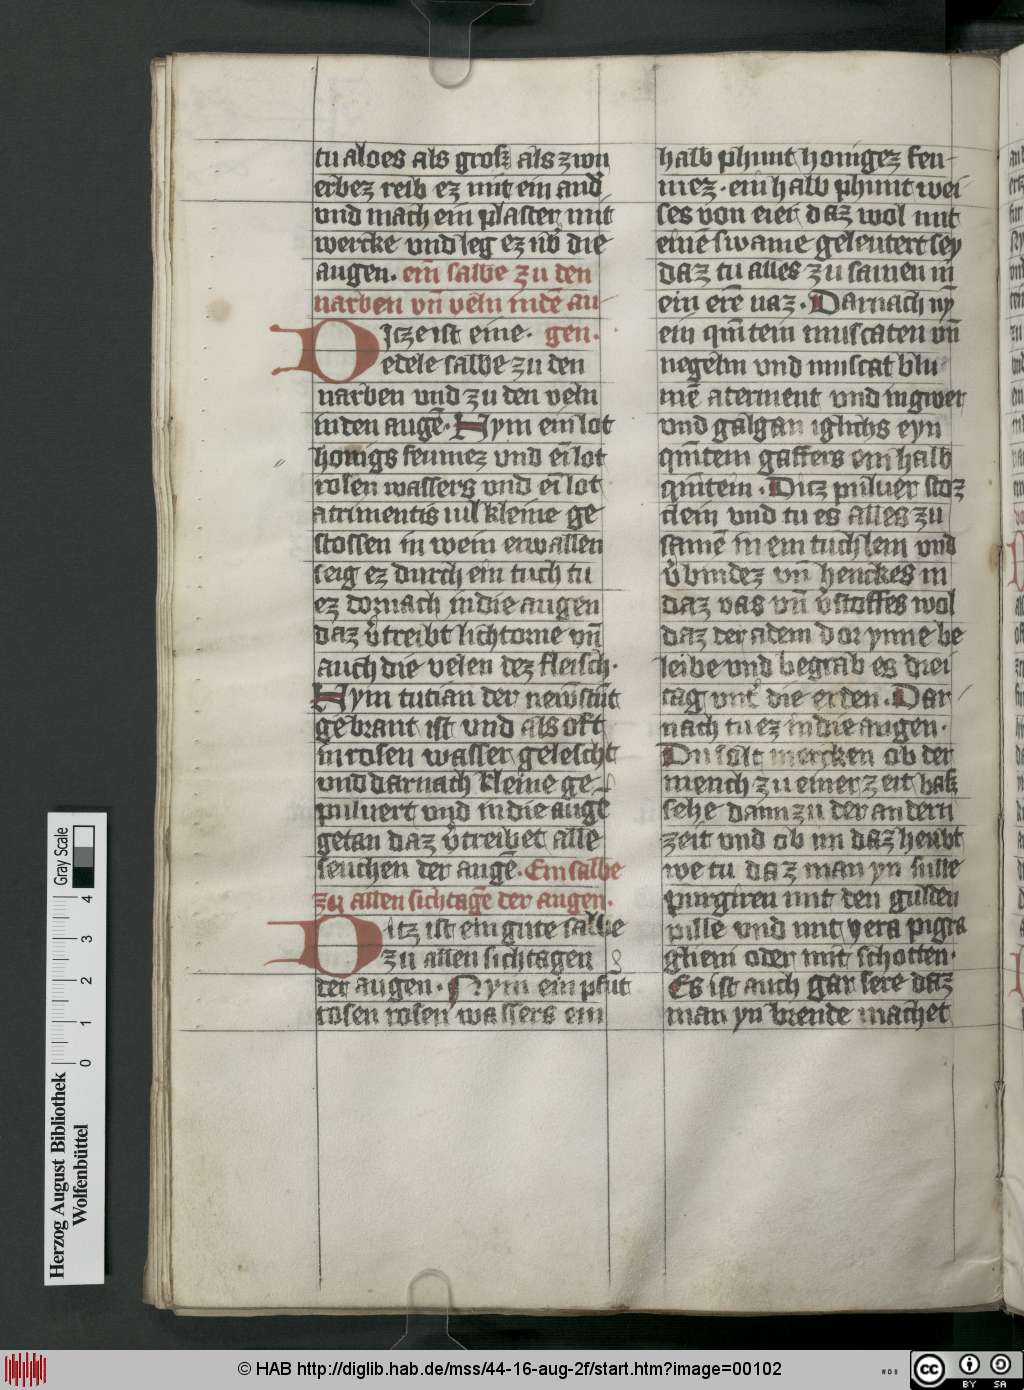 tu aloes als grosz als zwu
erbez reib ez mit ein and̉
vnd mach ein plaster mit
wercke vnd leg ez vb̉ die
augen. ein̄ salbe zu den
narben vn̄ veln indē au-
Dicze ist eine. gen.
edele salbe zu den
narben vnd zu den veln
in den augē. Nym ein lot
honigs feimez vnd eī lot
rosen wassers vnd eī lot
atrimentis viil kleine ge
stossen in wein erwallen
seig ez durch ein tuch tu
ez dornach in die augen
daz v̉treibt lichtome vn̄
auch die velen dez fleisch.
Nym tutian der
gebrant ist vnd als oft
in rosen wasser gelescht
vnd darnach kleine ge-
puluert vnd in die auge
getan daz v̉treibet alle
seuchen der auge. Ein salbe
zu allen sichtagē der augen.
Ditz ist ein gute salbe
zu allen sichtagen
der augen. Nym ein pfūt
rosen rosen wassers ein
halb phunt honigez fei-
mez. ein halb phunt wei-
ses von eier daz wol mit
einē swame geleutert sey
daz tu alles zu samen in
ein erē vaz. Darnach nȳ
ein qūitein muscaten vn̄
negelin vnd muscat blu
mē aterment vnd ingwer
vnd galgan iglichs eyn
qūitein gaffers ein halb
qūitein. Ditz puluer stoz
clein vnd tu es alles zu
samē in ein tuchlein vnd
v̉bindez vn̄ henckes in
daz vas vn̄ v̉stoffes wol
daz der adem dor ynne be
leibe vnd begrab es drei
tag vnt̉ die erden. Dar-
nach tu ez in die augen.
Du salt mercken ob der
mench zu einer zeit baz
sehe dann zu der andern
zeit vnd ob im daz heubt
we tu daz man yn sulle
purgiren mit den gulden
pille vnd mit yera pigra
glieni oder mit schotten.
Es ist auch gar sere daz
man yn brende machet
Gray Scale
4
3
2
1
0
Herzog August Bibliothek
Wolfenbüttel
© HAB http://diglib.hab.de/mss/44-16-aug-2f/start.htm?image=00102
WDB
CC BY SA